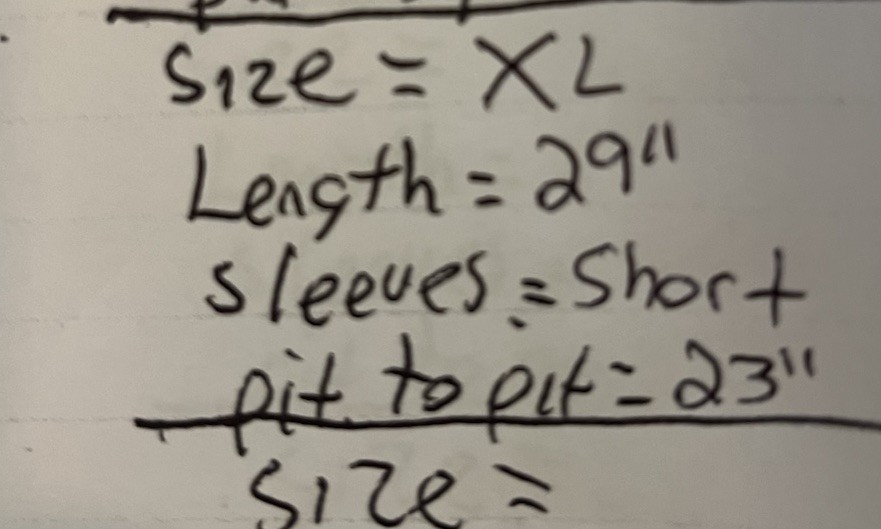 Size = XL
Length = 29"
Sleeves = Short
pit to pit = 23"
Size =